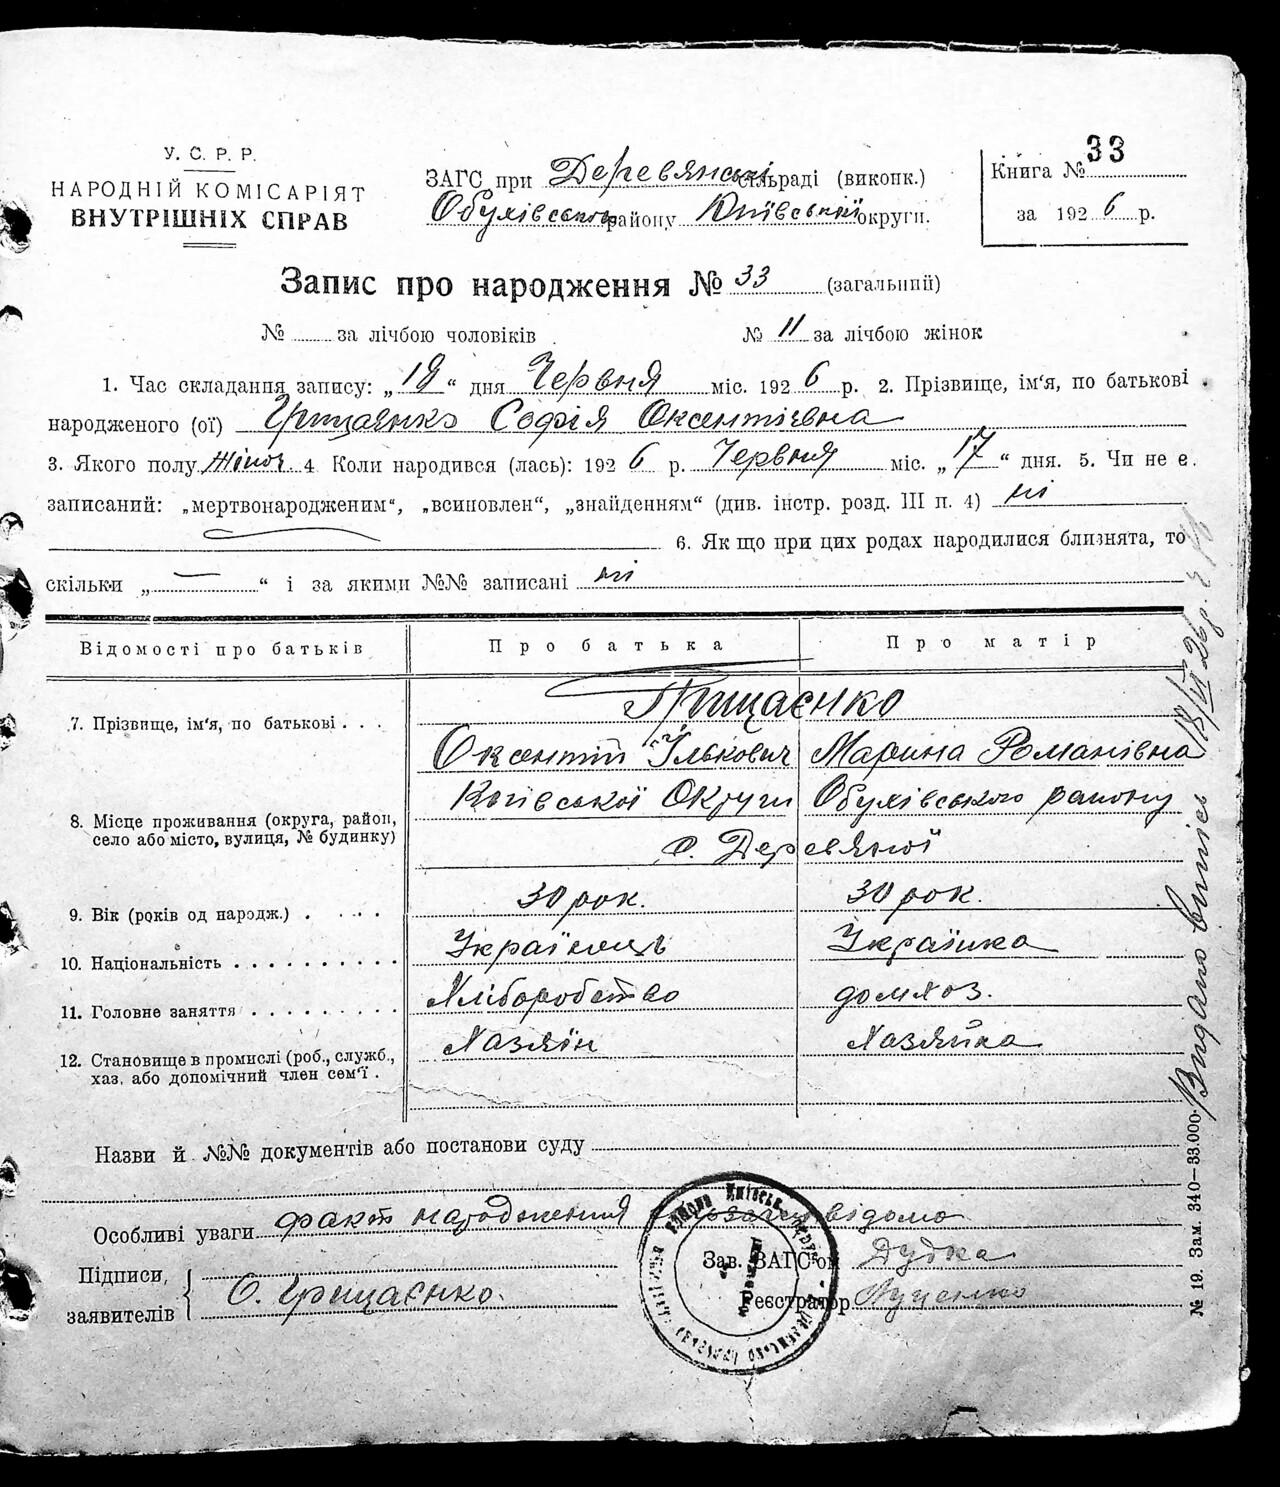 У. С. Р. Р.
НАРОДНІЙ КОМІСАРІЯТ
ВНУТРІШНІХ СПРАВ
ЗАГС при Деревянській сільраді (виконк.)
Обухівського району Київської округи.
Книга № 33
за 1926 р.
Запис про народження № 33 (загальний)
№ за лічбою чоловіків № 11 за лічбою жінок
1. Час складання запису: „18“ дня Червня міс. 1926 р. 2. Прізвище, ім'я, по батькові
народженого (ої) Грицаєнко Софія Оксентіївна
3. Якого полу жіноч. 4 Коли народився (лась): 1926 р. Червня міс. „17“ дня. 5. Чи не є
записаний: „мертвонародженим“, „всиновлен“, „знайденям“ (див. інстр. розд. III п. 4) ні
6. Як що при цих родах народилися близнята, то
скільки „—“ і за якими №№ записані ні
Відомості про батьків Про батька Про матір
7. Прізвище, ім'я, по батькові . . . Грицаєнко
Оксентій Ількович Марина Романівна
8. Місце проживання (округа, район, село або місто, вулиця, № будинку) Київської Округи Обухівського району
с. Деревяної
9. Вік (років од народж.) . . . . 30 рок. 30 рок.
10. Національність . . . . . . . . . . Українець Українка
11. Головне заняття . . . . . . . . . Хліборобство домхоз.
12. Становище в промислі (роб., служб., хаз. або допомічний член сем'ї . Хазяїн Хазяйка
Назви й №№ документів або постанови суду
Особливі уваги факт народження відомо
Підписи заявителів О. Грицаєнко.
Зав. ЗАГС'ом Дудка
Реєстратор Луценко
Видано випись 18/VI 26 р.
№ 19. Зам. 340—33.000.